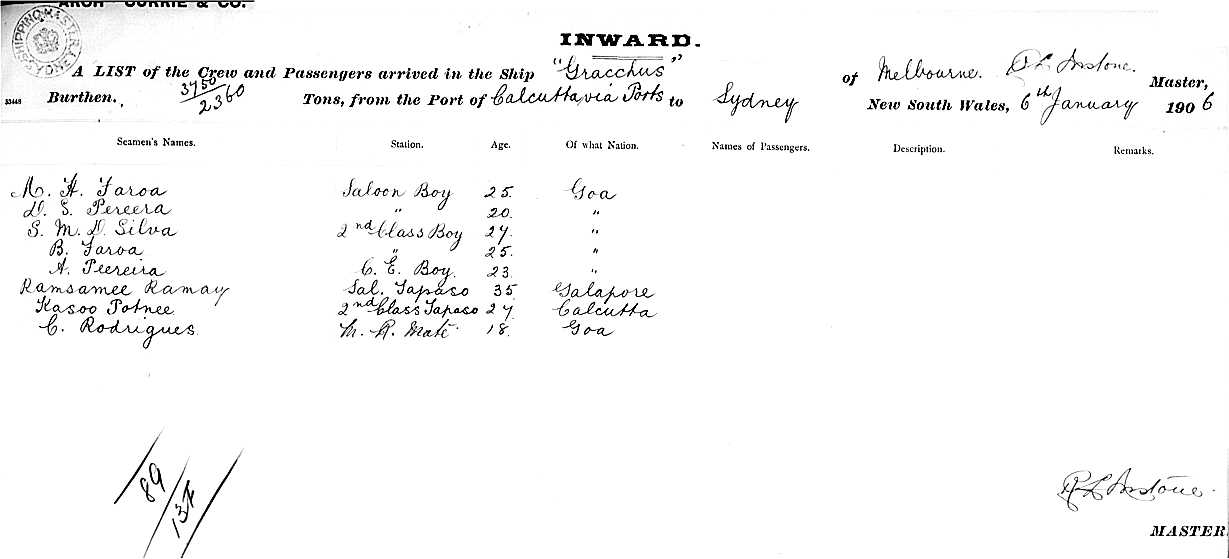 ARCH CURRIE & CO.
SHIPPING MASTER SYDNEY
INWARD.
A LIST of the Crew and Passengers arrived in the Ship "Gracchus" of Melbourne. Master,
33448 Burthen., 3750/2360 Tons, from the Port of Calcutta via Ports to Sydney New South Wales, 6th January 1906
Seamen's Names. Station. Age. Of what Nation. Names of Passengers. Description. Remarks.
M. H. Faroa Saloon Boy 25. Goa
D. S. Pereera " 20. "
S. M. D. Silva 2nd Class Boy 27. "
B. Faroa " 25. "
A. Peereira C. E. Boy. 23 "
Ramsamee Ramay Sal. Tapaso 35 Galapore
Kasoo Potnee 2nd Class Tapaso 27. Calcutta
C. Rodrigues. M. R. Mate 18. Goa
89/137
MASTER